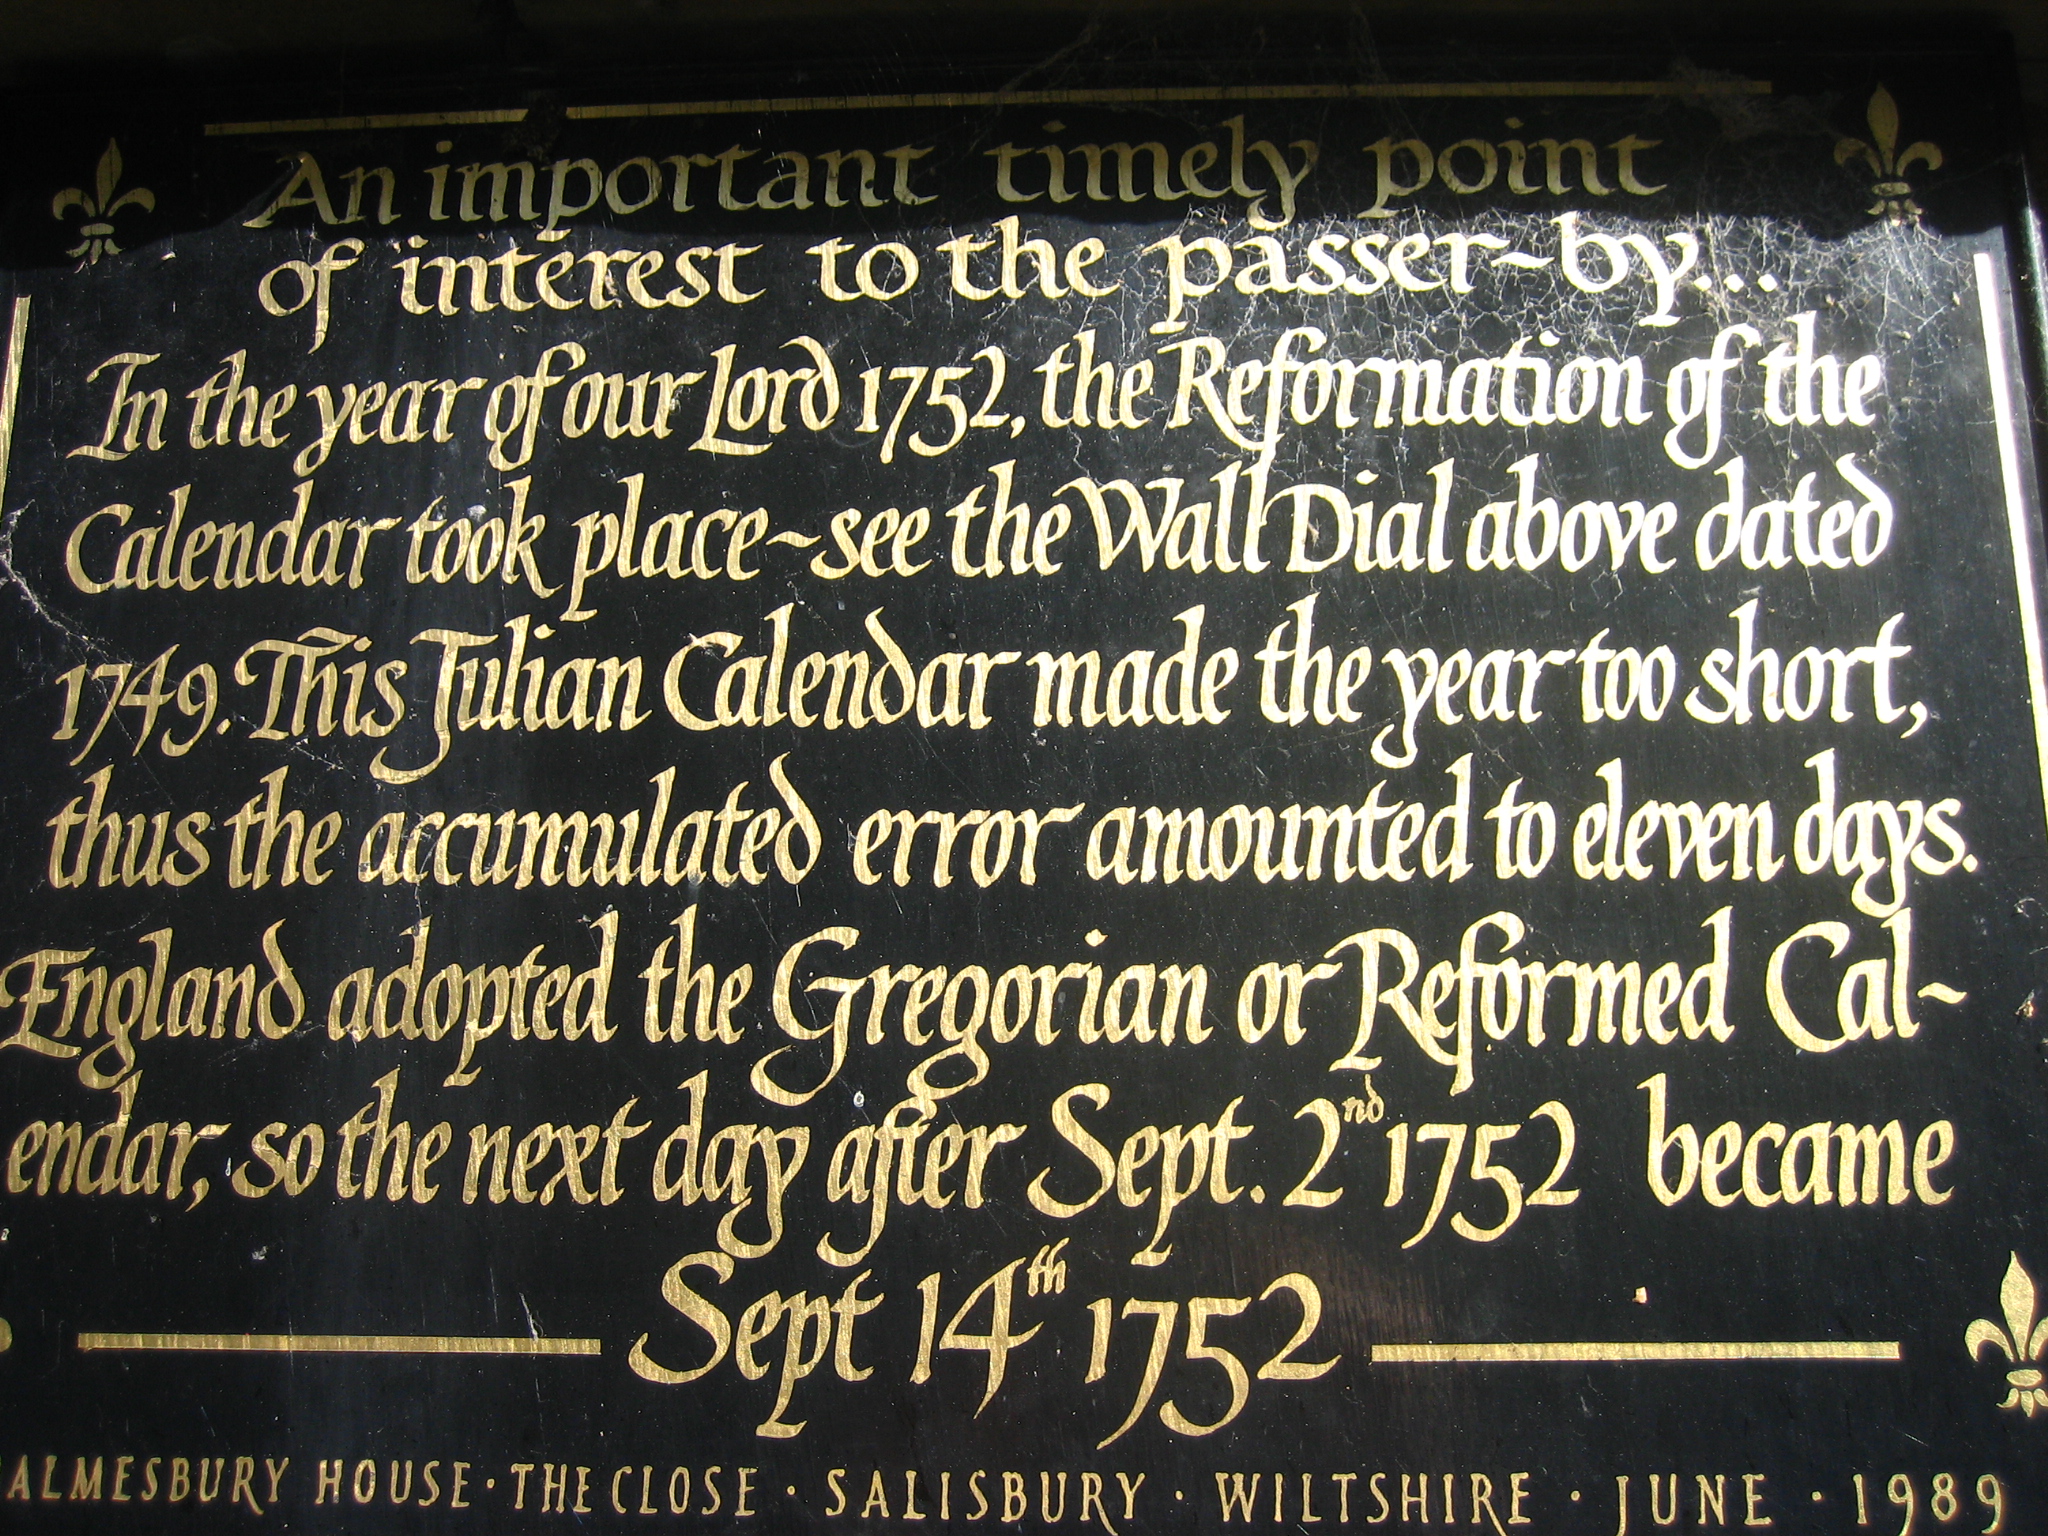 An important timely point
of interest to the passer-by...
In the year of our Lord 1752, the Reformation of the
Calendar took place~see the Wall Dial above dated
1749. This Julian Calendar made the year too short,
thus the accumulated error amounted to eleven days.
England adopted the Gregorian or Reformed Cal~
endar, so the next day after Sept. 2nd 1752 became
Sept 14th 1752
ALMESBURY HOUSE · THE CLOSE · SALISBURY · WILTSHIRE · JUNE · 1989